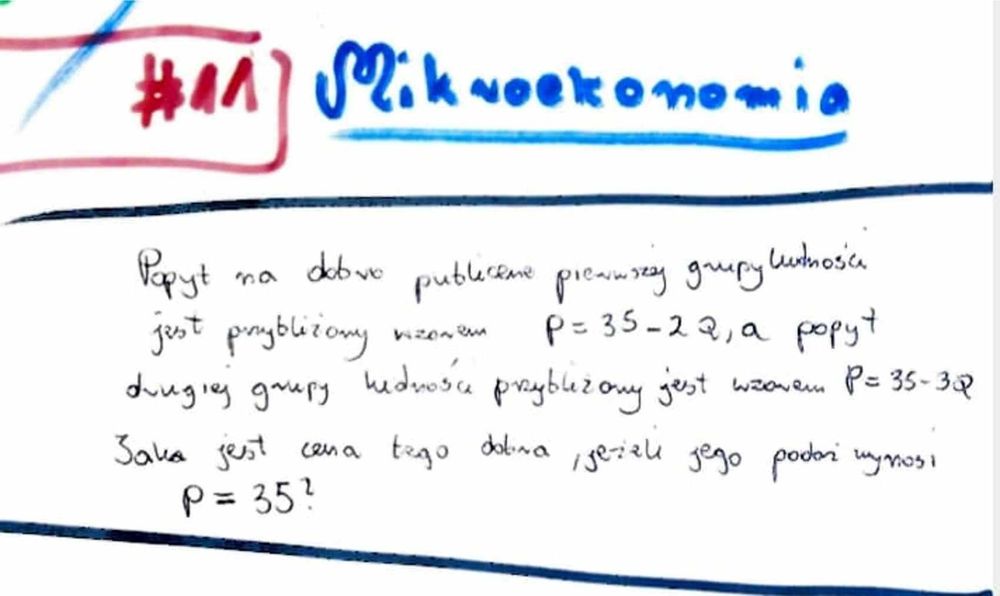 #11 Mikroekonomia
Popyt na dobro publiczne pierwszej grupy ludności
jest przybliżony wzorem P = 35 - 2Q, a popyt
drugiej grupy ludności przybliżony jest wzorem P = 35 - 3Q
Jaka jest cena tego dobra, jeżeli jego podaż wynosi
P = 35?